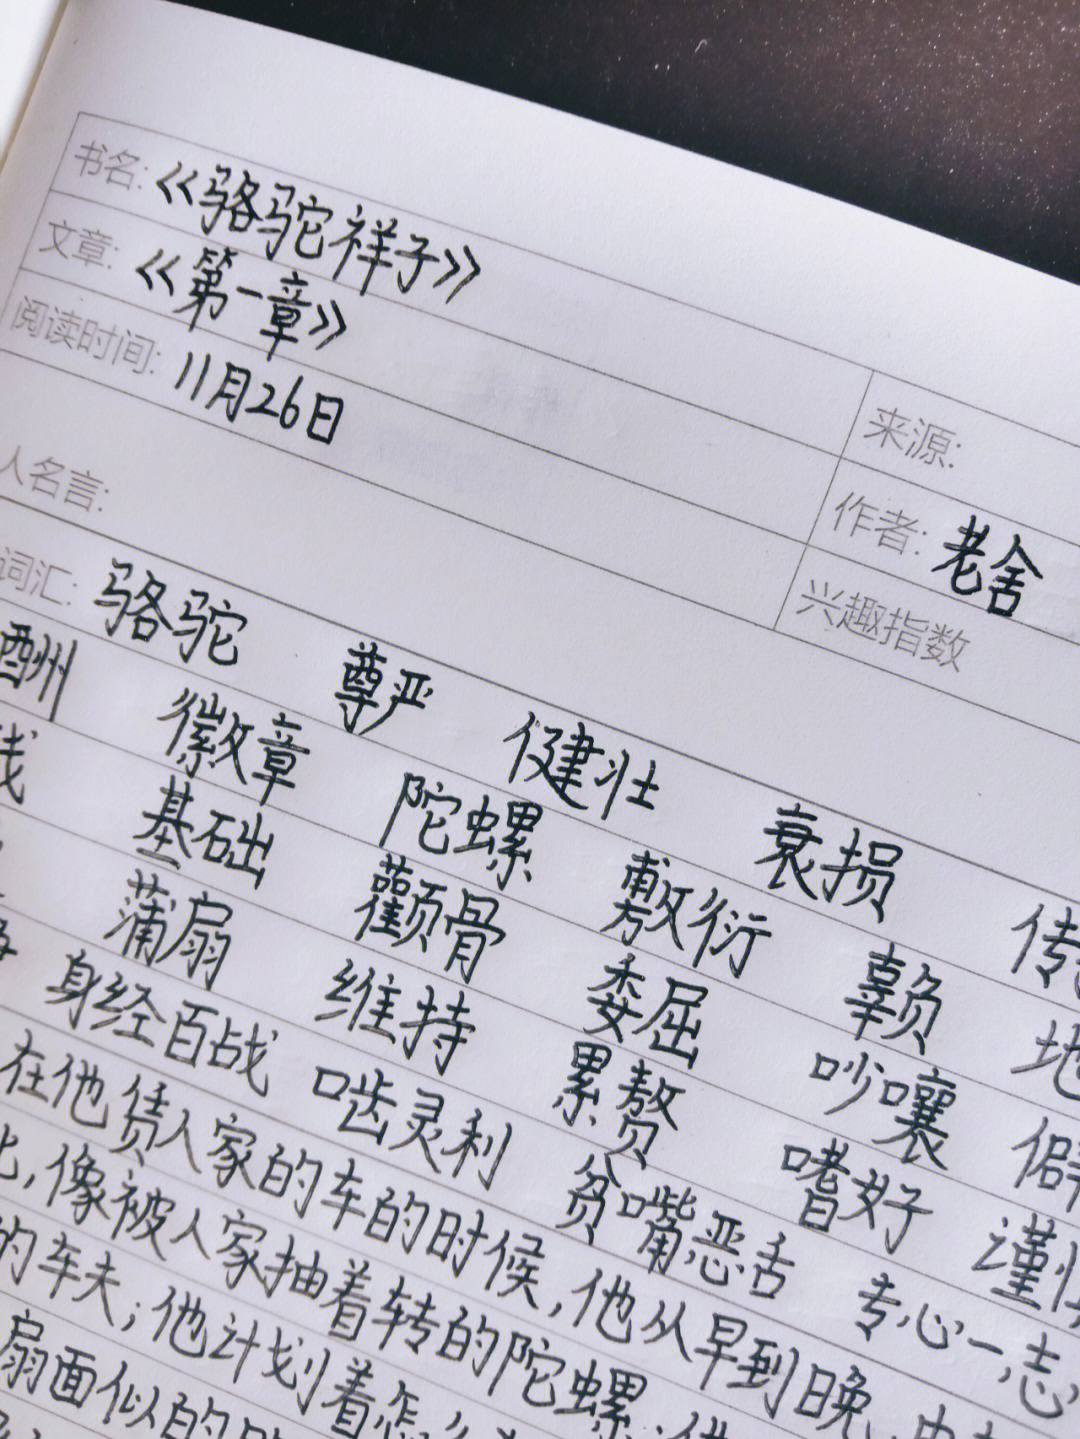 书名:《骆驼祥子》 来源:
文章:《第一章》 作者:老舍
阅读时间:11月26日 兴趣指数
人名言:
词汇:骆驼 尊严 健壮 衰损
酬 徽章 陀螺 敷衍 辜负 地
基础 颧骨 委屈 吵嚷 僻
蒲扇 维持 累赘 嗜好 谨
身经百战 口齿灵利 贫嘴恶舌 专心一志
在他赁人家的车的时候,他从早到晚,由
像被人家抽着转的陀螺;
的车夫;他计划着怎么
扇面似的